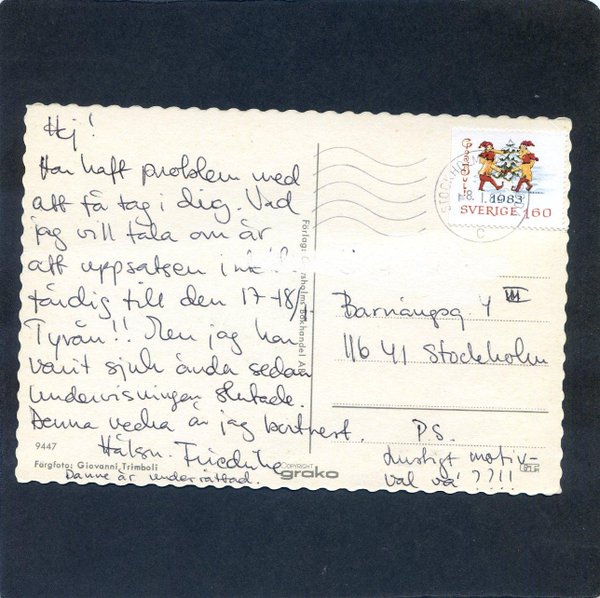 Hej!
Har haft problem med
att få tag i dig. Vad
jag vill tala om är
att uppsatsen i
färdig till den 17-18/1.
Tyvärr!! Men jag har
varit sjuk ända sedan
undervisningen slutade.
Denna vecka är jag bortrest.
Hälsn. Friederike
Danne är underrättad.
9447
Färgfoto: Giovanni Trimboli
Förlag: Bokhandel AB
COPYRIGHT
grako
God Jul
STOCKHOLM
8. 1.1983
SVERIGE 160
Barnängsg. 4 III
116 41 Stockholm
P.S.
Lustigt motiv-
val va' ??!!